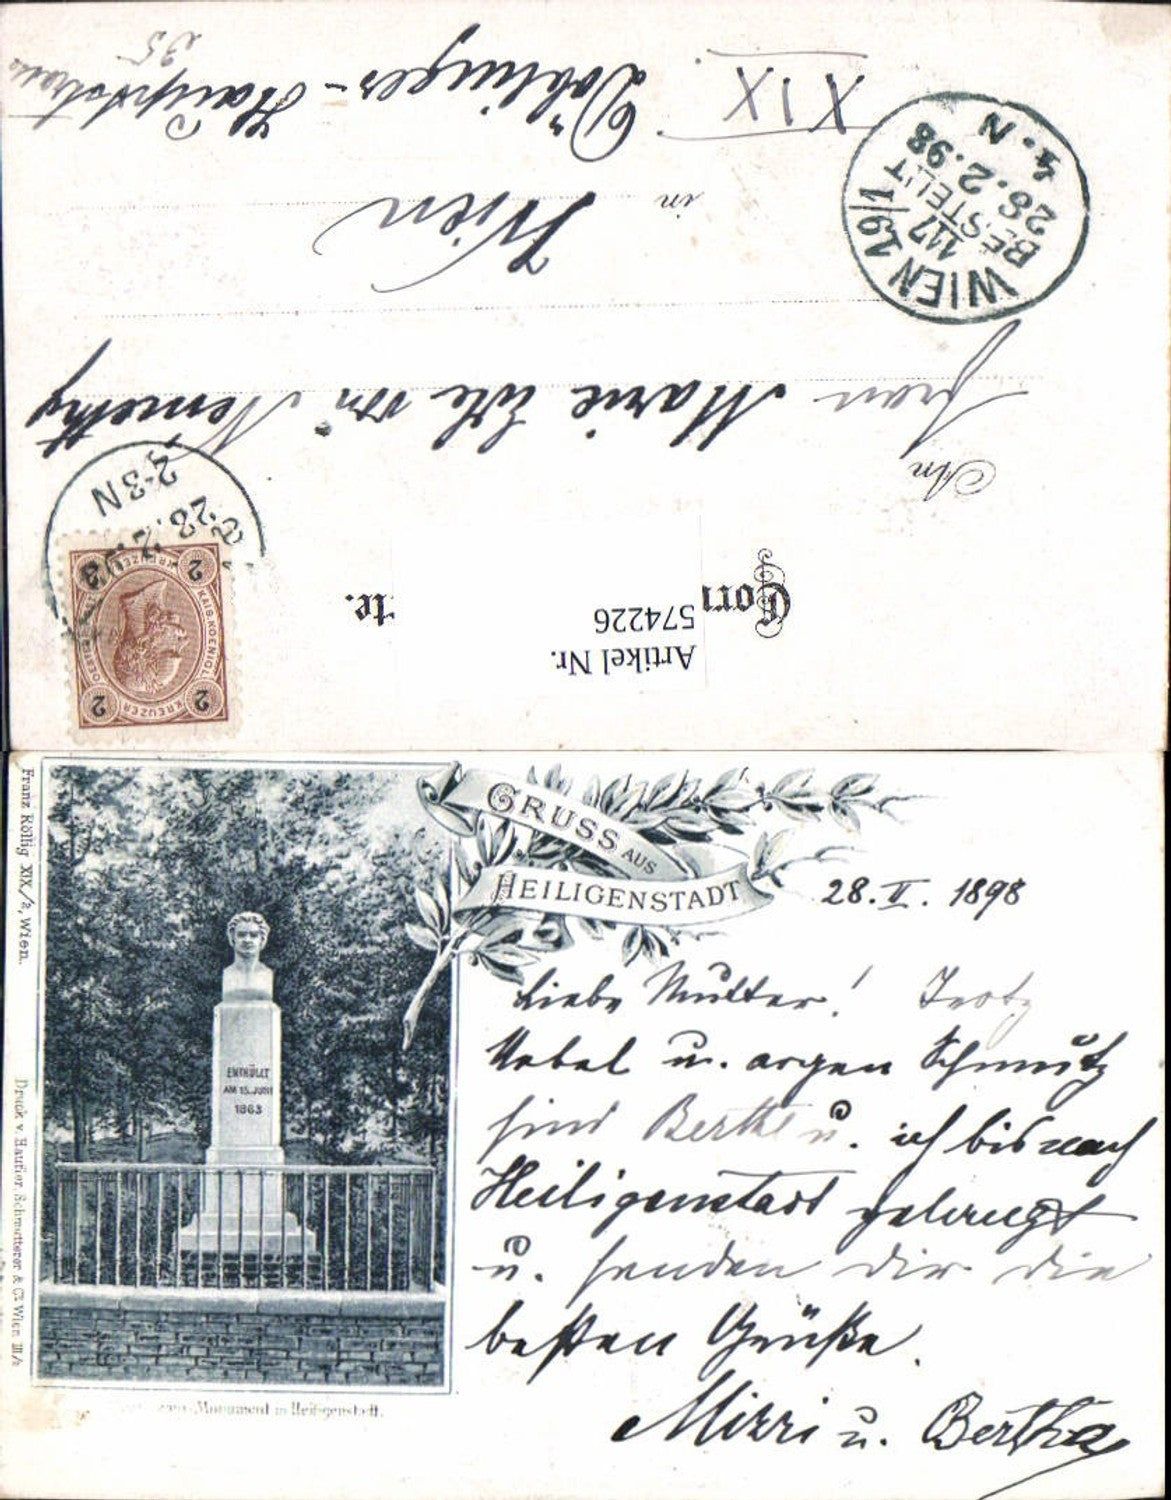 Correspondenz-Karte.
Artikel Nr.
574226
An
Frau Marie Edle von Nemethy
in Wien
XIX
Döblinger-Hauptstrasse
35
WIEN 19/1
117
BESTELLT
28.2.98
4.N
28.2.98
2-3N
2
KREUZER
2
KAIS. KOENIGL.
2
KREUZER
2
GRUSS AUS
HEILIGENSTADT
28. II. 1898
Liebe Mutter! Trotz
Nebel u. argen Schmutz
sind Bertha u. ich bis nach
Heiligenstadt
u. senden dir die
besten Grüße.
Mizzi u. Bertha
ENTHÜLLT
AM 15. JUNI
1863
Monument in Heiligenstadt.
Franz Röllig XIX/2, Wien.
Druck v. Haufler Schmutterer & Co Wien III/2